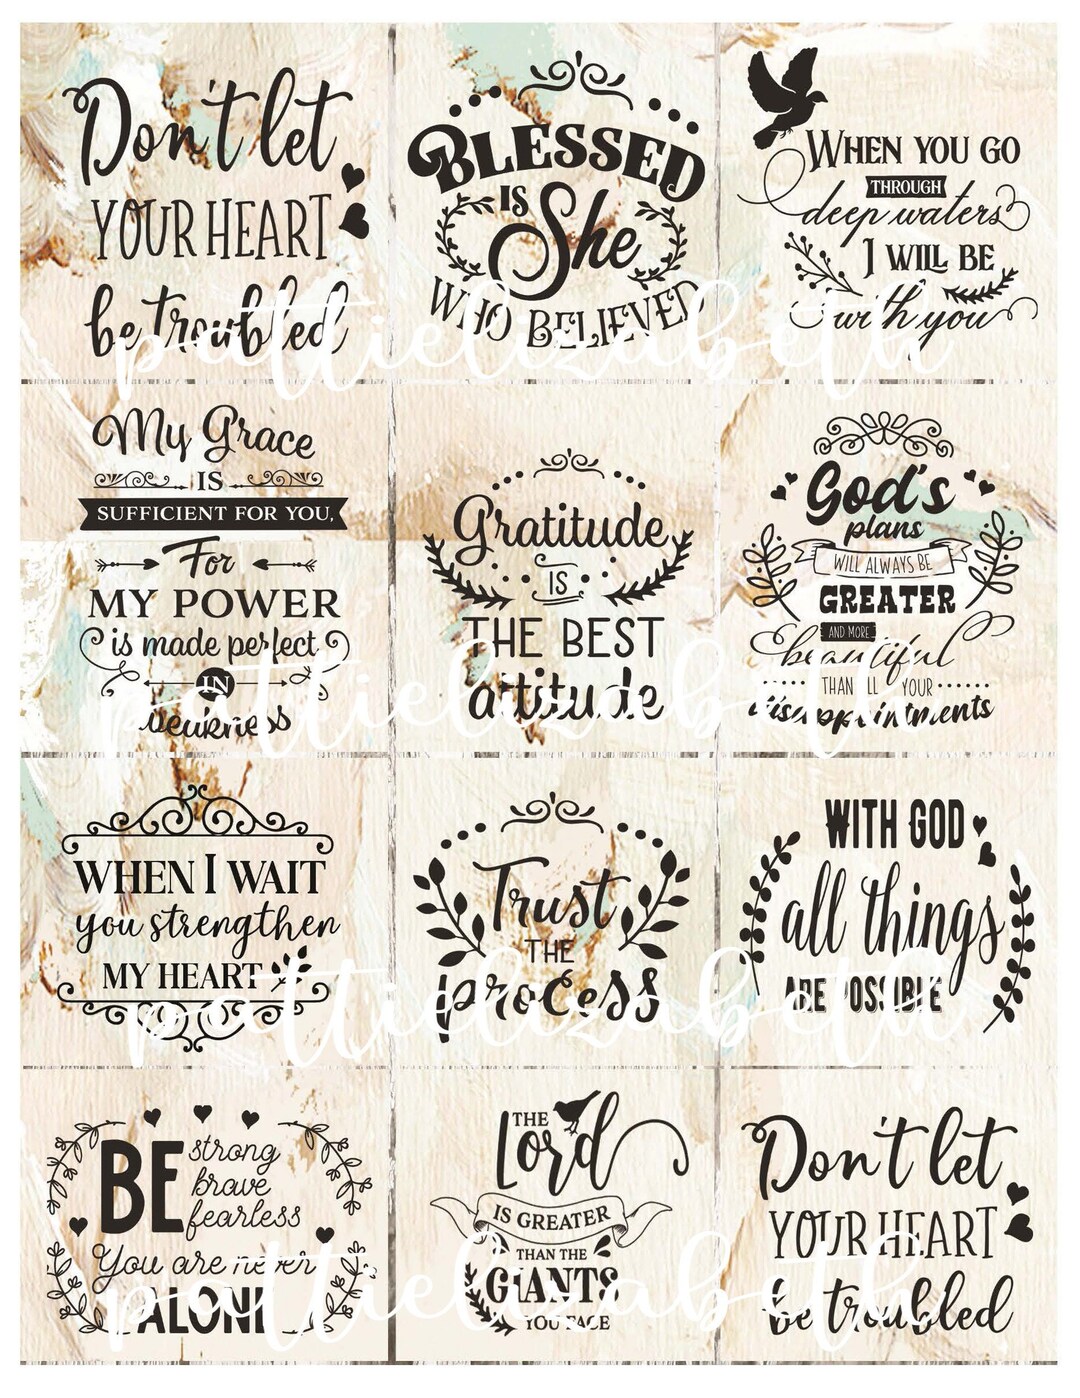 Don't let
YOUR HEART
be troubled
BLESSED
IS She
WHO BELIEVED
WHEN YOU GO
THROUGH
deep waters
I WILL BE
with you
pattielizabeth
My Grace
IS
SUFFICIENT FOR YOU,
For
MY POWER
is made perfect
IN
weakness
Gratitude
IS
THE BEST
attitude
God's
plans
WILL ALWAYS BE
GREATER
AND MORE
beautiful
THAN ALL YOUR
disappointments
pattielizabeth
WHEN I WAIT
you strengthen
MY HEART
Trust
THE
process
WITH GOD
all things
ARE POSSIBLE
pattielizabeth
BE strong
brave
fearless
You are never
ALONE
THE
Lord
IS GREATER
THAN THE
GIANTS
YOU FACE
Don't let
YOUR HEART
be troubled
pattielizabeth